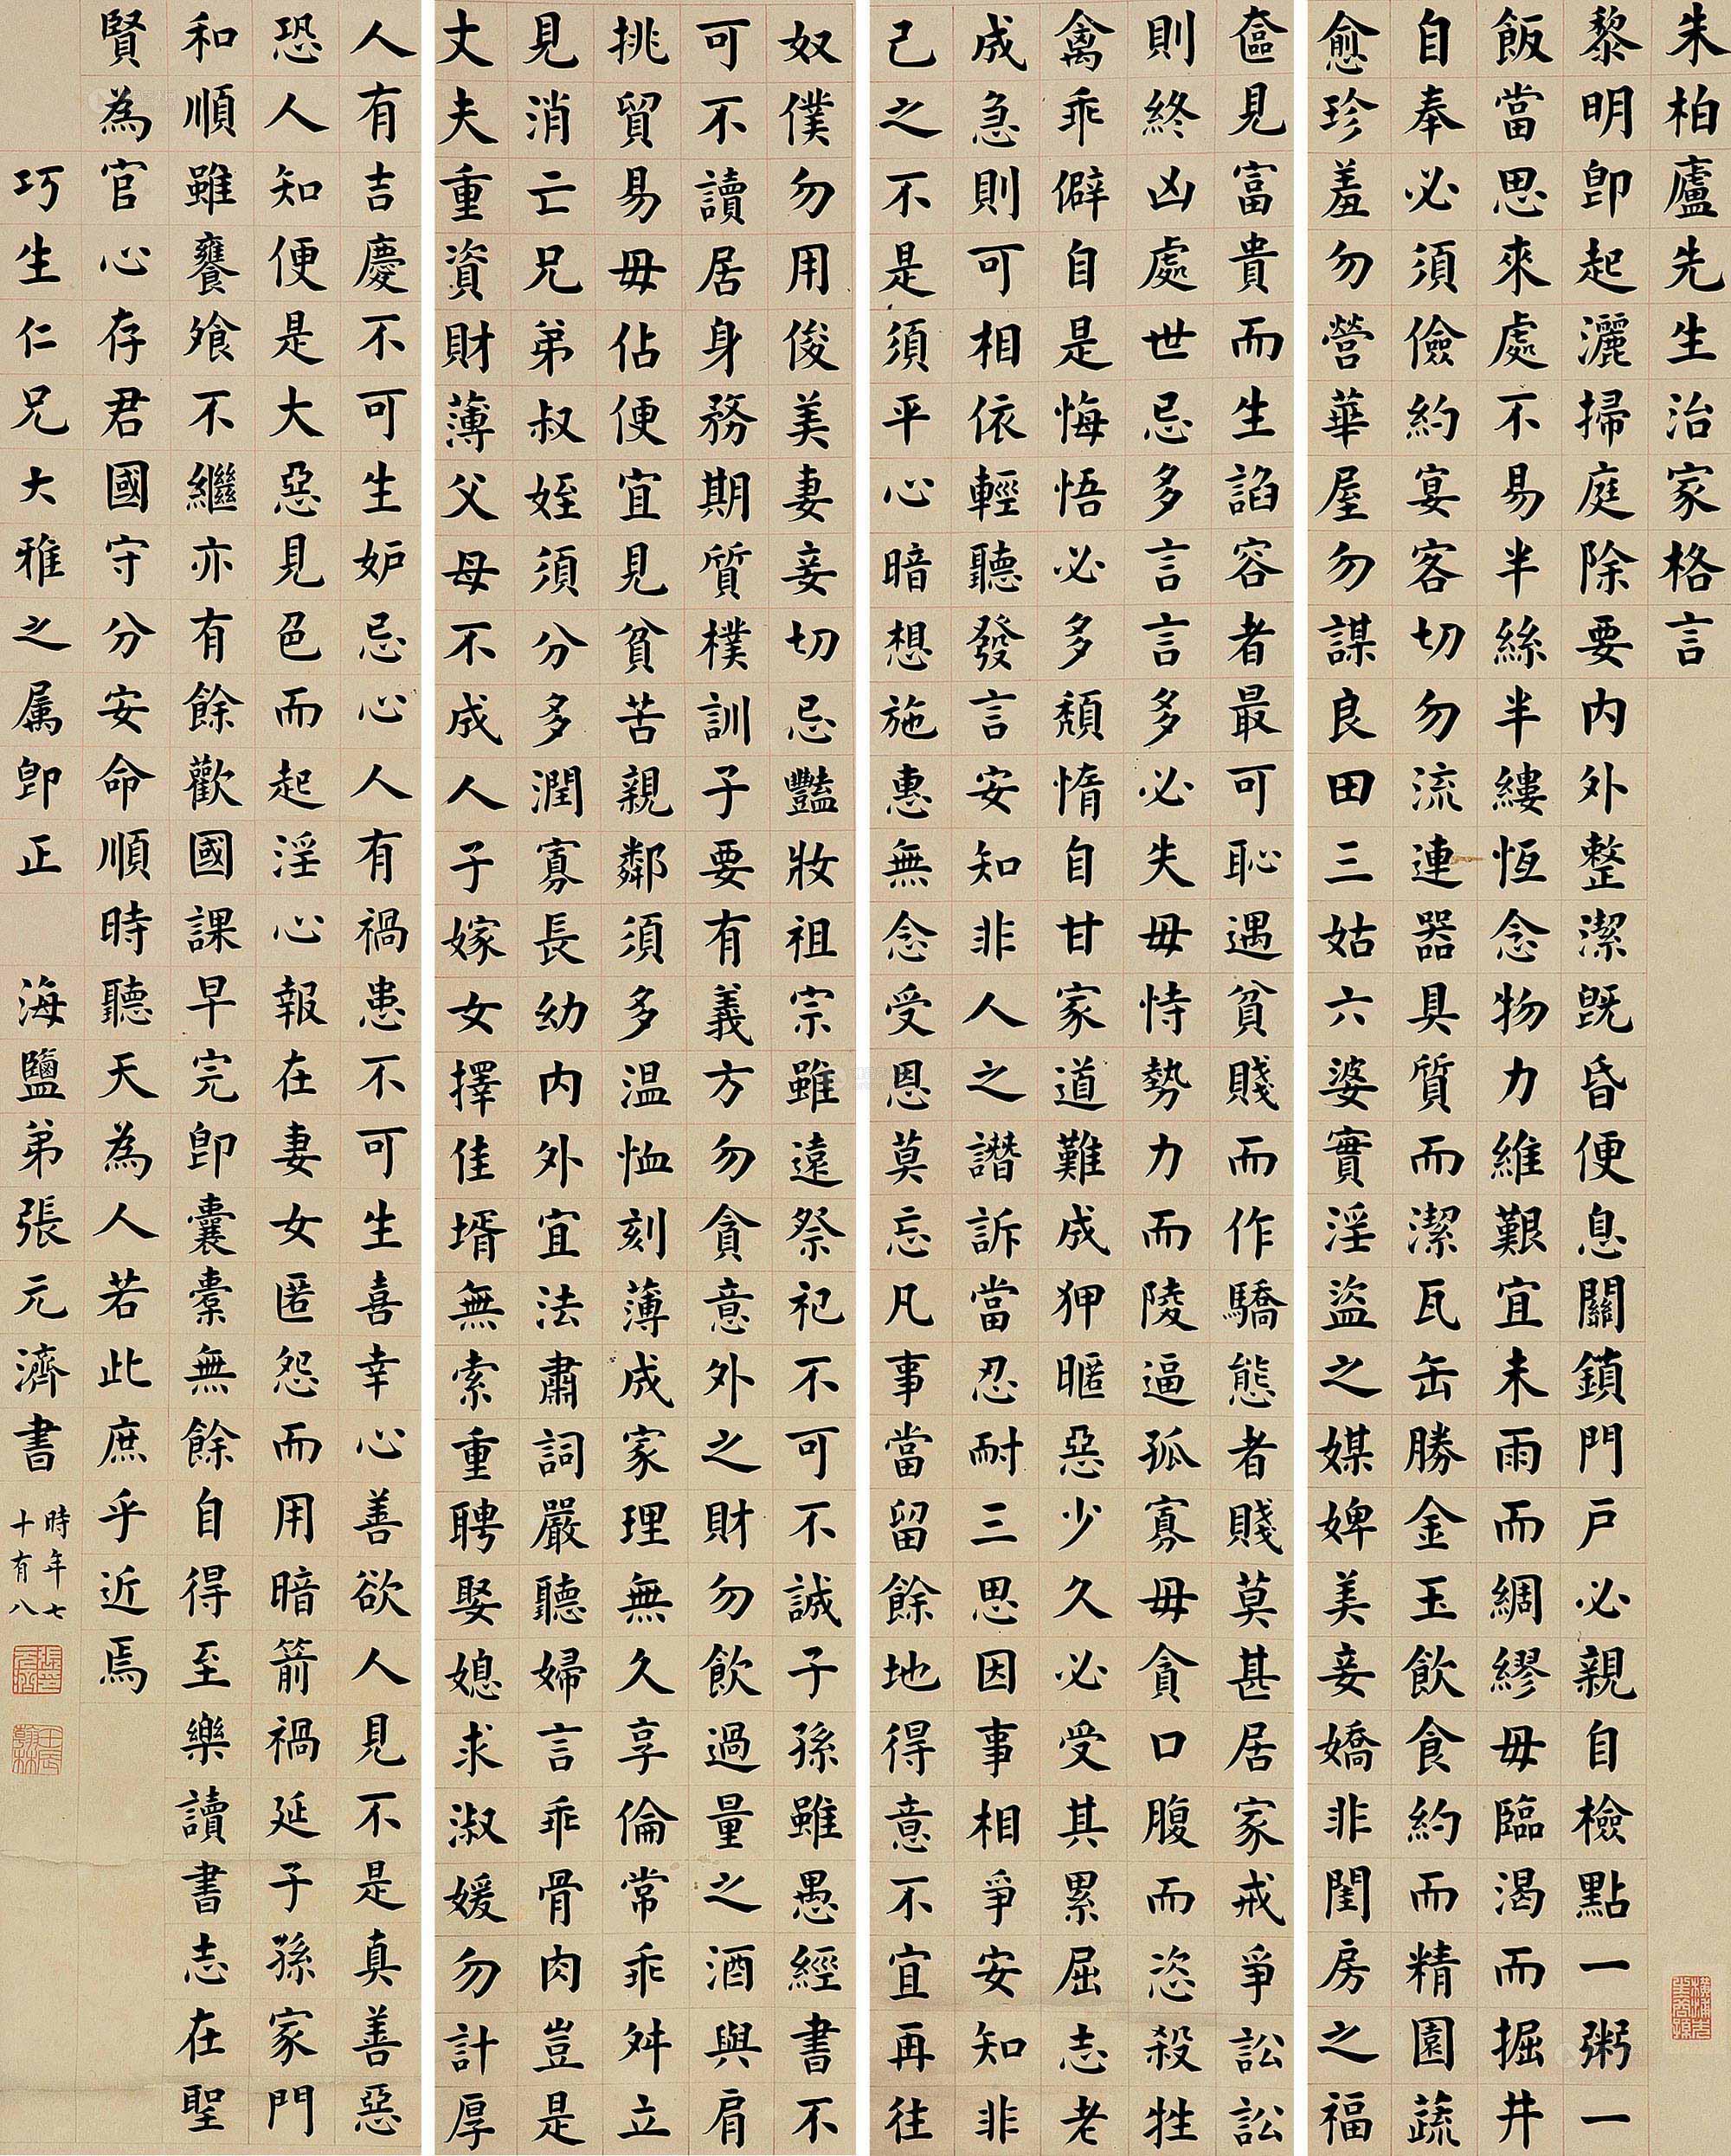 朱柏廬先生治家格言
黎明即起灑掃庭除要内外整潔既昏便息關鎖門户必親自檢點一粥一
飯當思來處不易半絲半縷恆念物力維艱宜未雨而綢繆毋臨渴而掘井
自奉必須儉約宴客切勿流連器具質而潔瓦缶勝金玉飲食約而精園蔬
愈珍羞勿營華屋勿謀良田三姑六婆實淫盜之媒婢美妾嬌非閨房之福
奴僕勿用俊美妻妾切忌豔妝祖宗雖遠祭祀不可不誠子孫雖愚經書不
可不讀居身務期質樸訓子要有義方勿貪意外之財勿飲過量之酒與肩
挑貿易毋佔便宜見貧苦親鄰須多温恤刻薄成家理無久享倫常乖舛立
見消亡兄弟叔姪須分多潤寡長幼内外宜法肅詞嚴聽婦言乖骨肉豈是
丈夫重資財薄父母不成人子嫁女擇佳壻無索重聘娶媳求淑媛勿計厚
奩見富貴而生諂容者最可恥遇貧賤而作驕態者賤莫甚居家戒爭訟訟
則終凶處世忌多言言多必失毋恃勢力而陵逼孤寡毋貪口腹而恣殺牲
禽乖僻自是悔悟必多頹惰自甘家道難成狎暱惡少久必受其累屈志老
成急則可相依輕聽發言安知非人之譖訴當忍耐三思因事相爭安知非
己之不是須平心暗想施惠無念受恩莫忘凡事當留餘地得意不宜再往
人有吉慶不可生妒忌心人有禍患不可生喜幸心善欲人見不是真善惡
恐人知便是大惡見色而起淫心報在妻女匿怨而用暗箭禍延子孫家門
和順雖饔飧不繼亦有餘歡國課早完即囊橐無餘自得至樂讀書志在聖
賢為官心存君國守分安命順時聽天為人若此庶乎近焉
巧生仁兄大雅之屬即正 海鹽弟張元濟書
時年七
十有八